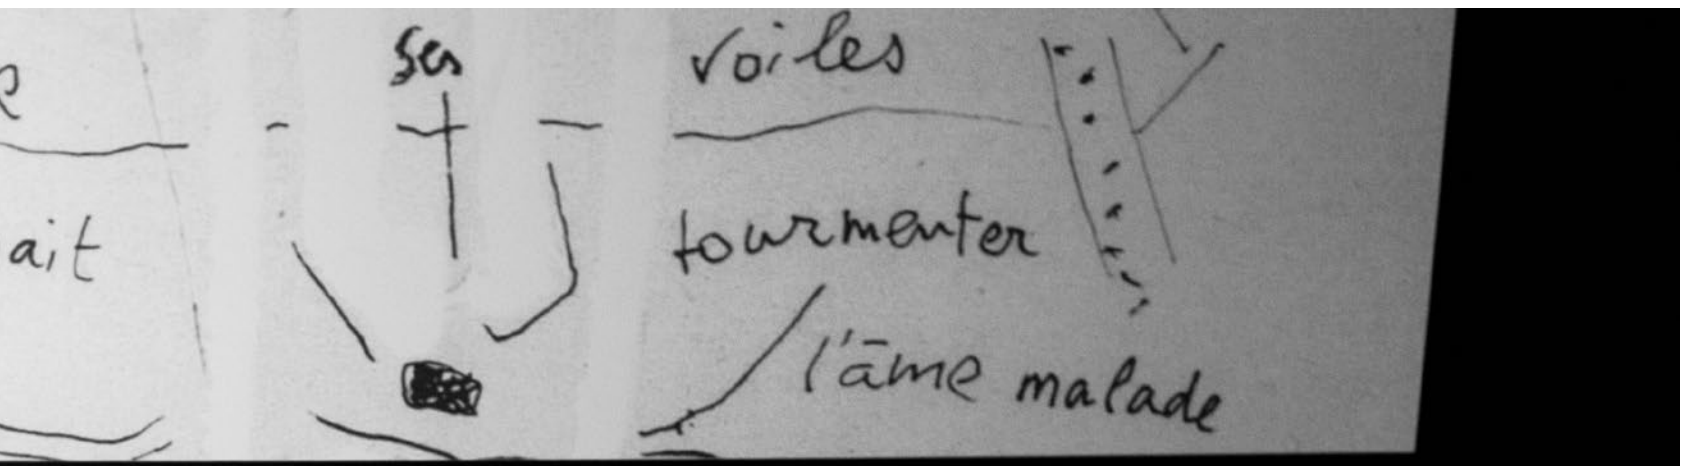 ses voiles
ait tourmenter
l'āme malade